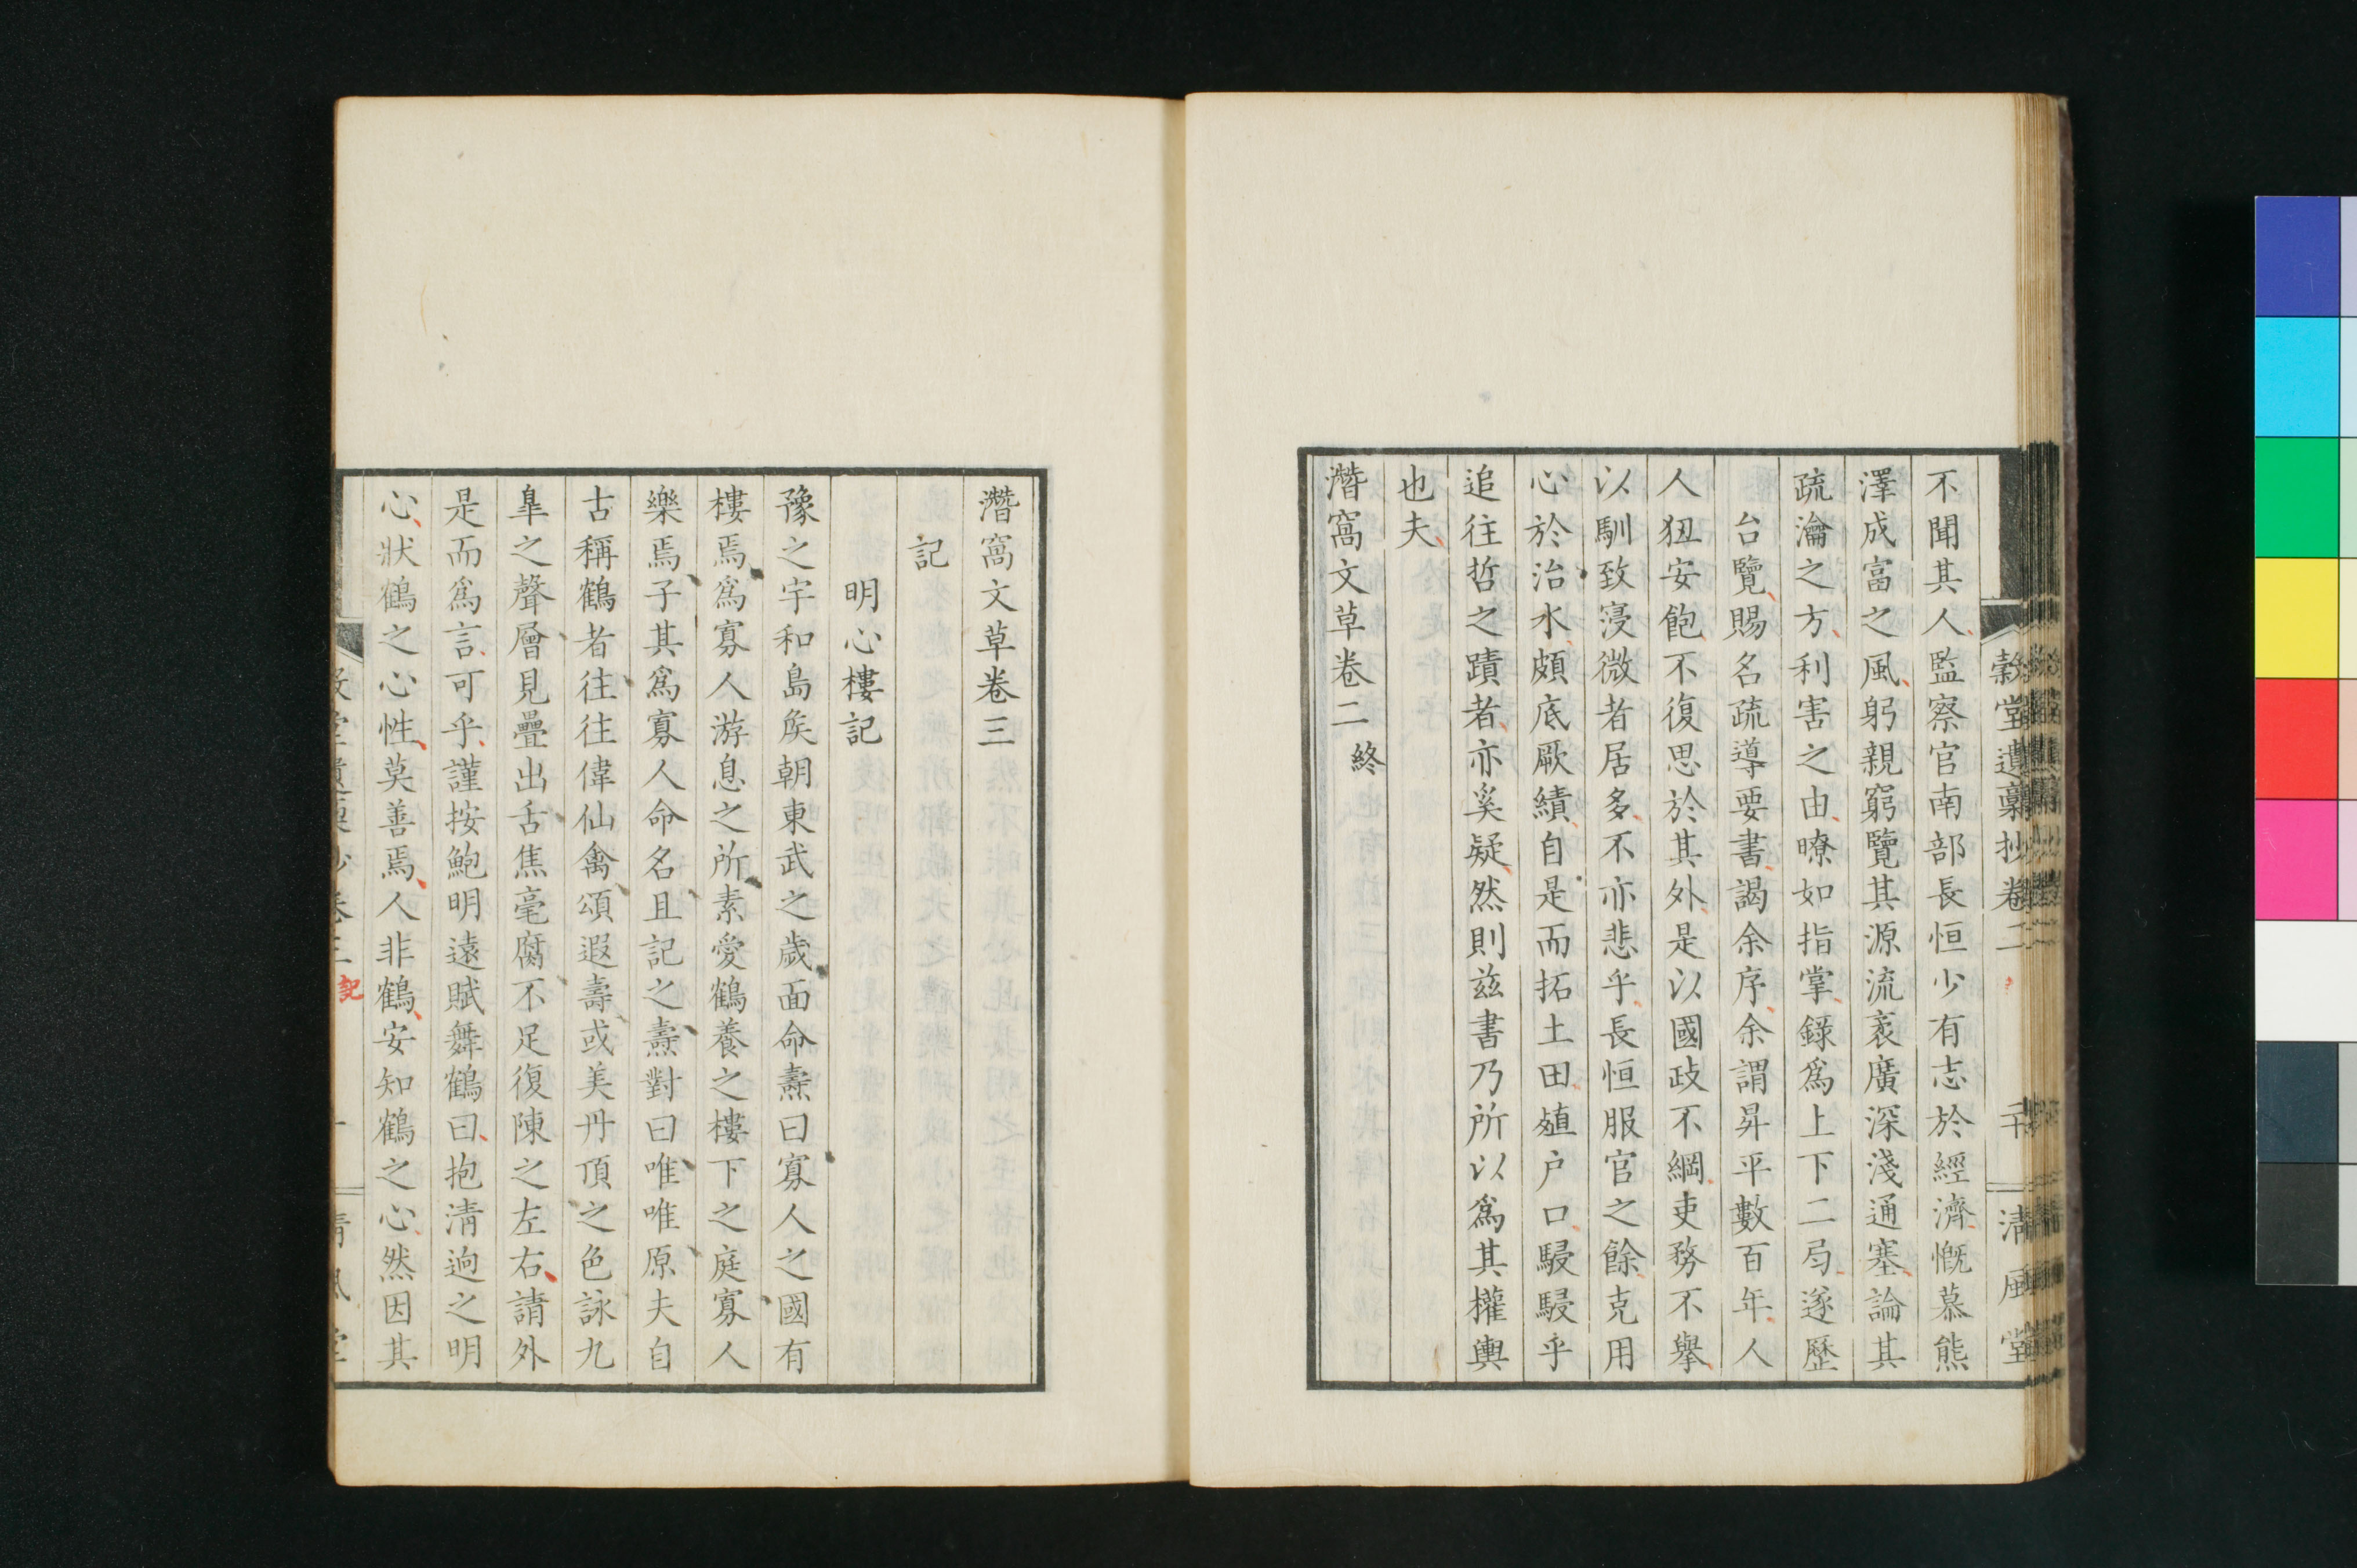 穀堂遺稟抄卷二
清風堂
不聞其人監察官南部長恒少有志於經濟慨慕熊
澤成富之風躬親窮覽其源流袤廣深淺通塞論其
疏瀹之方利害之由暸如指掌錄爲上下二弓遂歷
台覽賜名疏導要書謁余序余謂昇平數百年人
人狃安飽不復思於其外是以國歧不綱吏務不擧
以馴致寖微者居多不亦悲乎長恒服官之餘克用
心於治水頗底厥績自是而拓土田殖户口駸駸乎
追往哲之蹟者亦奚疑然則茲書乃所以爲其權輿
也夫
潛窩文草卷二 終
潛窩文草卷三
記
明心樓記
豫之宇和島矦朝東武之歲面命燾曰寡人之國有
樓焉爲寡人游息之所素愛鶴養之樓下之庭寡人
樂焉子其爲寡人命名且記之燾對曰唯唯原夫自
古稱鶴者往往偉仙禽頌遐壽或美丹頂之色詠九
皐之聲層見疊出舌焦毫腐不足復陳之左右請外
是而爲言可乎謹按鮑明遠賦舞鶴曰抱淸逈之明
心狀鶴之心性莫善焉人非鶴安知鶴之心然因其
記